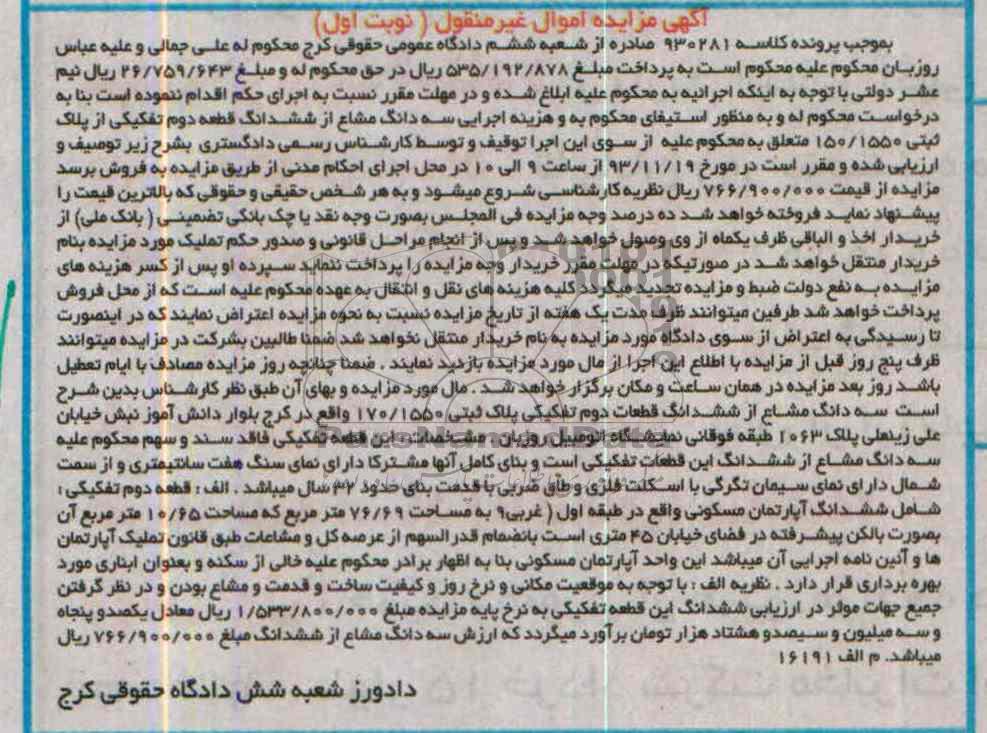 آگهی مزایده اموال غیر منقول ( نوبت اول)
بموجب پرونده کلاسه ۹۳۰۲۸۱ صادره از شعبه ششم دادگاه عمومی حقوقی کرج محکوم له علی جمالی و علیه عباس
روزبان محکوم علیه محکوم است به پرداخت مبلغ ۵۳۵/۱۹۲/۸۷۸ ریال در حق محکوم له و مبلغ ۲۶/۷۵۹/۶۴۳ ریال نیم
عشر دولتی با توجه به اینکه اجرائیه به محکوم علیه ابلاغ شده و در مهلت مقرر نسبت به اجرای حکم اقدام ننموده است بنا به
درخواست محکوم له و به منظور استیفای محکوم به و هزینه اجرایی سه دانگ مشاع از ششدانگ قطعه دوم تفکیکی از پلاک
ثبتی ۱۵۰/۱۵۵۰ متعلق به محکوم علیه از سوی این اجرا توقیف و توسط کارشناس رسمی دادگستری بشرح زیر توصیف و
ارزیابی شده و مقرر است در مورخ ۹۳/۱۱/۱۹ از ساعت ۹ الی ۱۰ در محل اجرای احکام مدنی از طریق مزایده به فروش برسد
مزایده از قیمت ۷۶۶/۹۰۰/۰۰۰ ریال نظریه کارشناسی شروع میشود و به هر شخص حقیقی و حقوقی که بالاترین قیمت را
پیشنهاد نماید فروخته خواهد شد ده درصد وجه مزایده فی المجلس بصورت وجه نقد یا چک بانکی تضمینی ( بانک ملی) از
خریدار اخذ و الباقی ظرف یکماه از وی وصول خواهد شد و پس از انجام مراحل قانونی و صدور حکم تملیک مورد مزایده بنام
خریدار منتقل خواهد شد در صورتیکه در مهلت مقرر خریدار وجه مزایده را پرداخت ننماید سپرده او پس از کسر هزینه های
مزایده به نفع دولت ضبط و مزایده تجدید میگردد کلیه هزینه های نقل و انتقال به عهده محکوم علیه است که از محل فروش
پرداخت خواهد شد طرفین میتوانند ظرف مدت یک هفته از تاریخ مزایده نسبت به نحوه مزایده اعتراض نمایند که در اینصورت
تا رسیدگی به اعتراض از سوی دادگاه مورد مزایده به نام خریدار منتقل نخواهد شد ضمنا طالبین بشرکت در مزایده میتوانند
ظرف پنج روز قبل از مزایده با اطلاع این اجرا از مال مورد مزایده بازدید نمایند . ضمنا چنانچه روز مزایده مصادف با ایام تعطیل
باشد روز بعد مزایده در همان ساعت و مکان برگزار خواهد شد . مال مورد مزایده و بهای آن طبق نظر کارشناس بدین شرح
است سه دانگ مشاع از ششدانگ قطعات دوم تفکیکی پلاک ثبتی ۱۷۰/۱۵۵۰ واقع در کرج بلوار دانش آموز نبش خیابان
علی زینعلی پلاک ۱۰۶۳ طبقه فوقانی نمایشگاه اتومبیل روزبان . مشخصات : این قطعه تفکیکی فاقد سند و سهم محکوم علیه
سه دانگ مشاع از ششدانگ این قطعات تفکیکی است و بنای کامل آنها مشترکا دارای نمای سنگ هفت سانتیمتری و از سمت
شمال دارای نمای سیمان تگرگی با اسکلت فلزی و طاق ضربی با قدمت بنای حدود ۳۲ سال میباشد . الف : قطعه دوم تفکیکی :
شامل ششدانگ آپارتمان مسکونی واقع در طبقه اول ( غربی۹ به مساحت ۷۶/۶۹ متر مربع که مساحت ۱۰/۶۵ متر مربع آن
بصورت بالکن پیشرفته در فضای خیابان ۴۵ متری است بانضمام قدر السهم از عرصه کل و مشاعات طبق قانون تملیک آپارتمان
ها و آئین نامه اجرایی آن میباشد این واحد آپارتمان مسکونی بنا به اظهار برادر محکوم علیه خالی از سکنه و بعنوان انباری مورد
بهره برداری قرار دارد . نظریه الف : با توجه به موقعیت مکانی و نرخ روز و کیفیت ساخت و قدمت و مشاع بودن و در نظر گرفتن
جمیع جهات موثر در ارزیابی ششدانگ این قطعه تفکیکی به نرخ پایه مزایده مبلغ ۱/۵۳۳/۸۰۰/۰۰۰ ریال معادل یکصدو پنجاه
و سه میلیون و سیصدو هشتاد هزار تومان برآورد میگردد که ارزش سه دانگ مشاع از ششدانگ مبلغ ۷۶۶/۹۰۰/۰۰۰ ریال
میباشد. م الف ۱۶۱۹۱
دادورز شعبه شش دادگاه حقوقی کرج